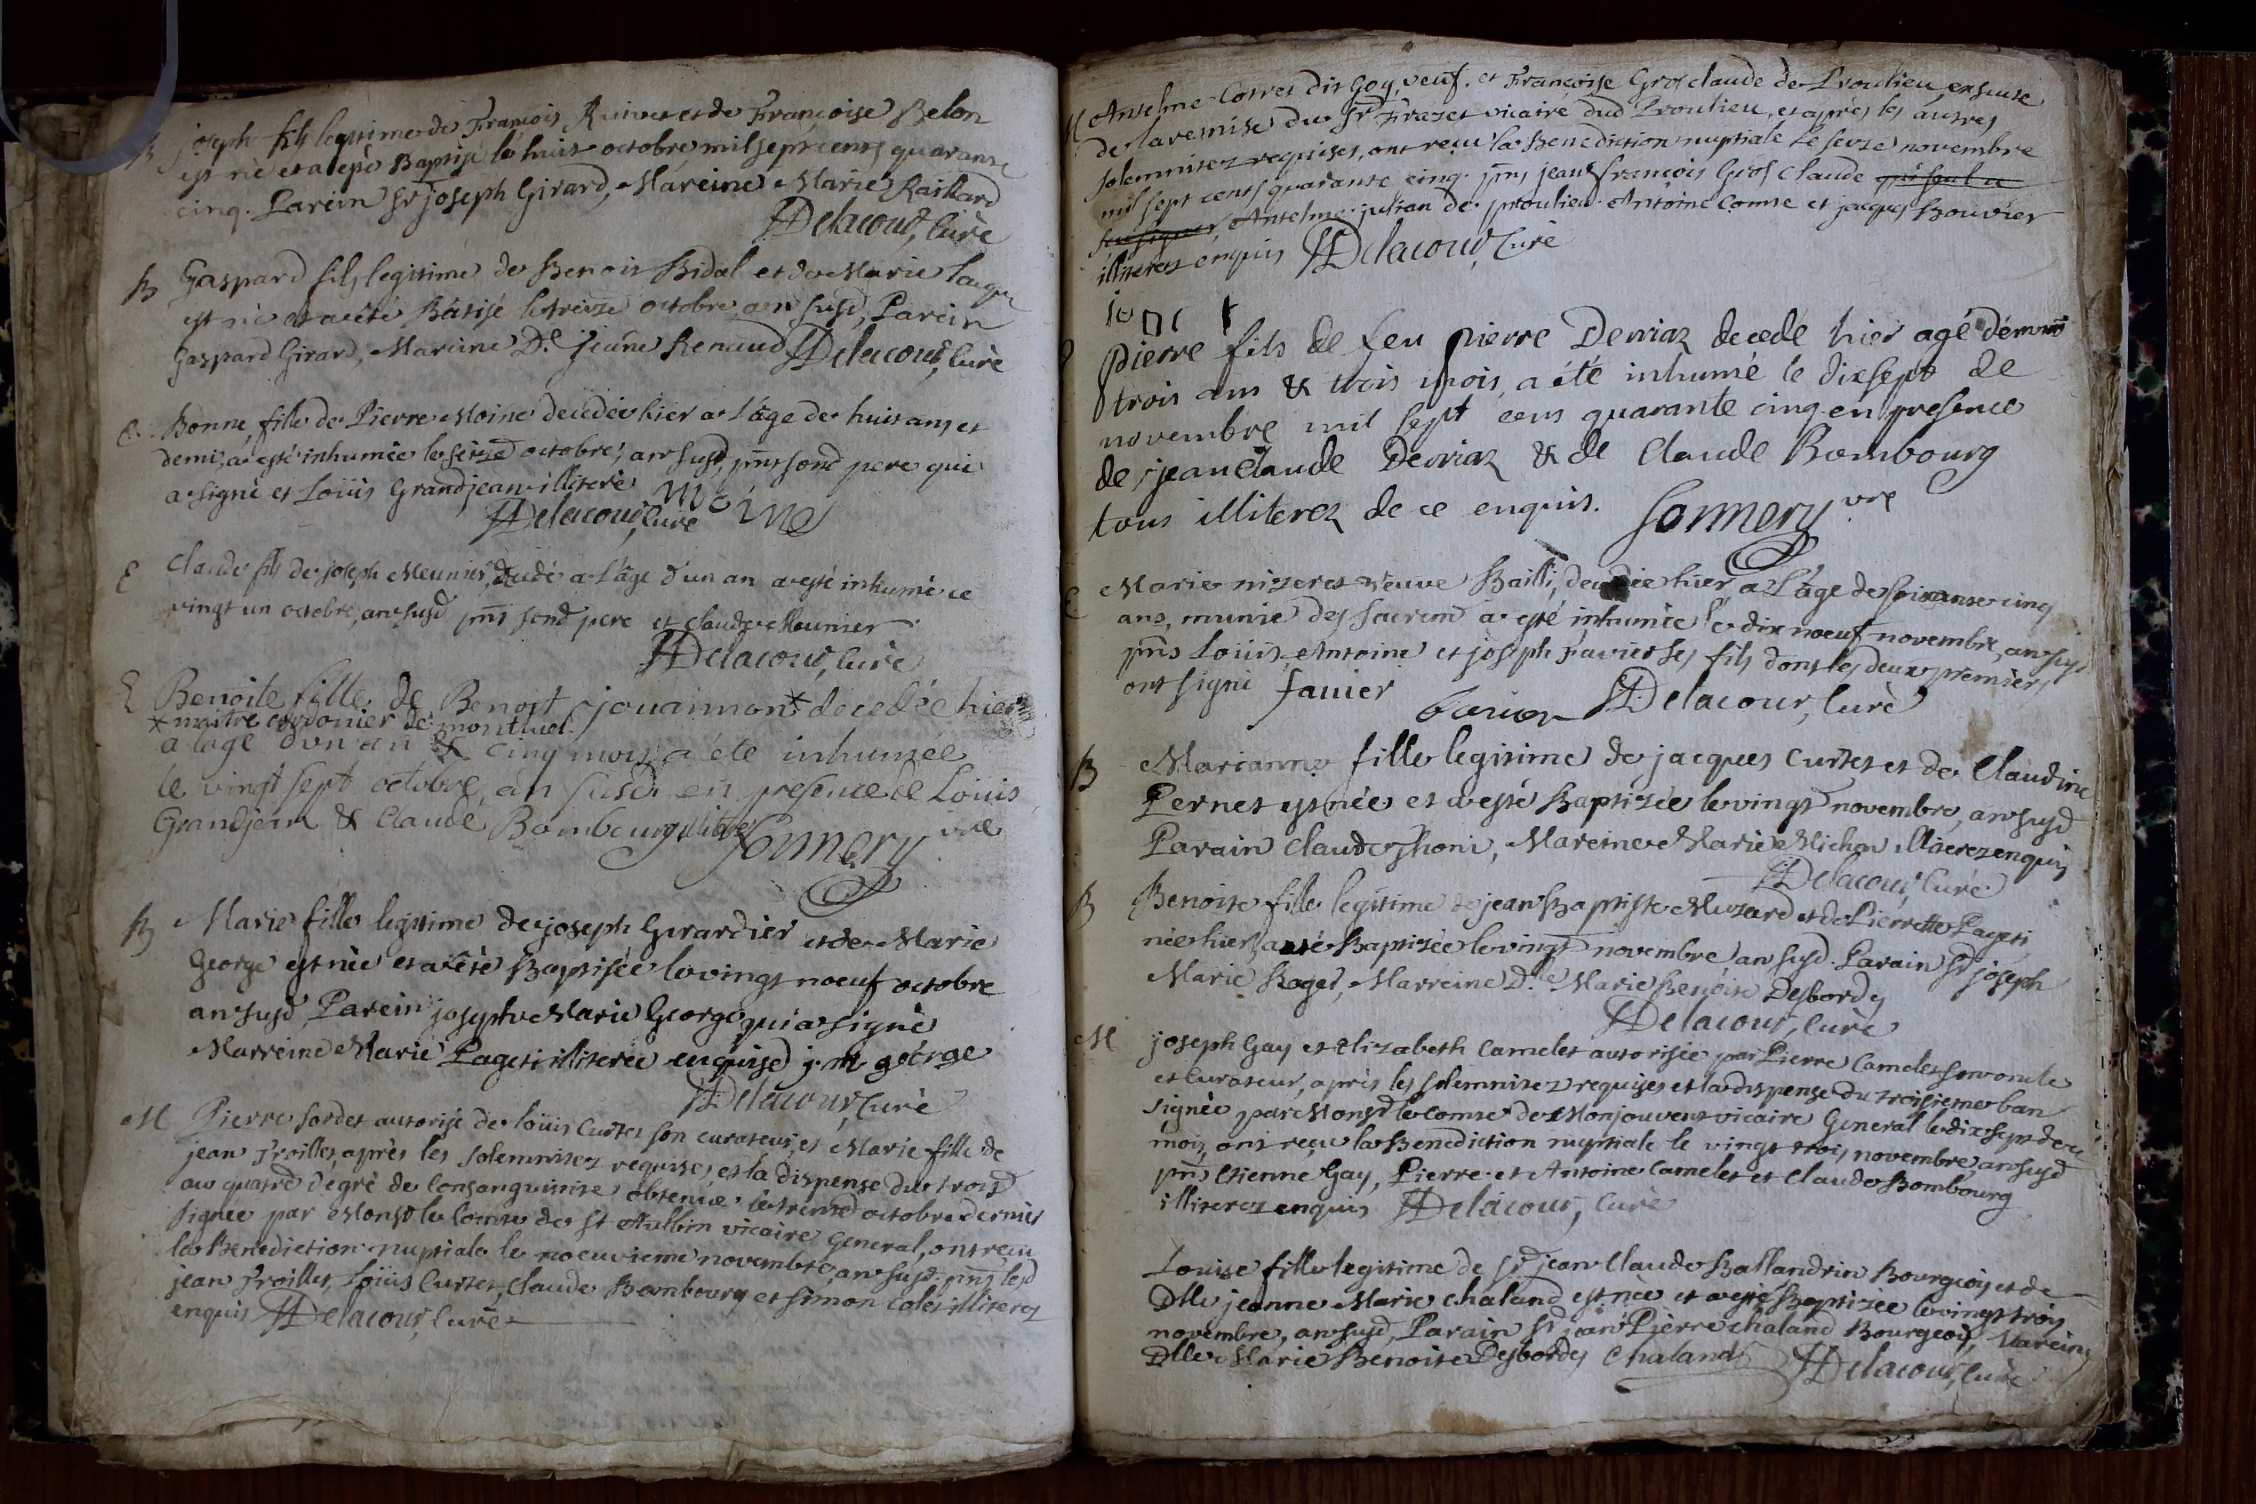 B joseph fils legitime de François Ruivet et de Françoise Belon
est né et a esté Baptisé le huit octobre mil sept cents quarante
cinq. Parein Sr joseph Girard, Mareine Marie Raillard
Delacour, Curé
B Gaspard fils legitime de Benoit Bidal et de Marie
est né et a eté Bâtisé le treize octobre an susd, Parein
Gaspard Girard, Mareine De jeane Renaud Delacour, Curé
E Bonne, fille de Pierre Moine decedée hier a l'age de huit ans et
demi, a esté inhumée le seize octobre, an susd, pnt sond pere qui
a signé et Loüis Grandjean illiteré Moine
Delacour, Curé
E Claude fils de joseph Meunier, decedé a l'age d'un an a esté inhumé ce
vingt un octobre, an susd pnts sond pere et claude Meunier
Delacour, Curé
E Benoite fille de Benoit jouannon * decedée hier
* maitre cordonier de montluel.
a l'age d'un an & cinq mois, a été inhumée
le vingt sept octobre, an susd. en presence de Loüis
Grandjean & Claude Bombourg illiterés Sonnery vre
B Marie fille legitime de joseph Girardier et de Marie
George est née et a êté Baptisée le vingt noeuf octobre
an susd, Parein joseph Marie George qui a signé
Marreine Marie Pageti illiterée enquise j. m george
Delacour, Curé
M Pierre Sordet autorisé de loüis Curtet son curateur, et Marie fille de
jean Troillet, après les solemnitez requises et la dispense du trois
au quatre dégré de Consanguinité obtenüe le treize octobre dernier
signée par Monsr le Comte de St Aulbin vicaire General, ont reçu
la Benediction nuptiale le noeuvieme novembre, an susd. pnts lesd
jean Troillet, Loüis Curtet, Claude Bombourg et simon Colet illiterez
enquis Delacour, Curé
M Anselme Cottet dit Goy, veuf. et Françoise Grosclaude de Proulieu, ensuite
de la remise du Sr Frezet vicaire dud Proulieu, et après les autres
solemnitez requises, ont reçu la Benediction nuptiale le seize novembre
mil sept cents quarante cinq. pnts jean françois Gros Claude
Anselme julian de proulieu Antoine Comte et jacques Bouvier
illiterez enquis Delacour, Curé
Pierre fils de feu pierre Derriaz decedé hier agé d'environ
trois ans & trois mois, a été inhumé le dixsept de
novembre mil sept cens quarante cinq en presence
de jean Claude Derriaz & de Claude Bombourg
tous illiterez de ce enquis. Sonnery vre
E Marie nizeret veuve Bailli, decedée hier, a l'age de soixante cinq
ans, munie des sacremts a esté inhumée le dix noeuf novembre, an susd
pnts Loüis, Antoine et joseph Favier ses fils dont les deux premiers
ont signé favier favier Delacour, Curé
B Marianne fille legitime de jacques Curtet et de Claudine
Pernet est née et a esté Baptizée le vingt novembre, an susd
Parain Claude Thoni, Mareine Marie Michon illiterez enquis
Delacour, Curé
B Benoite fille legitime de jean Baptiste Muzard et de Pierrette Pageti
née hier, a eté Baptizée le vingt novembre an susd. Parain Sr joseph
Marie Roget, Marreine Dlle Marie Benoite Desbordes
Delacour, Curé
M joseph Gay et Elizabeth Camelet autorisée par Pierre Camelet son oncle
et Curateur, après les solemnitez requises et la dispense du troisieme ban
signée par Monsr le Comte de Monjouvent vicaire General le dix sept de ce
mois, ont reçu la Benediction nuptiale le vingt trois novembre, an susd
pnts Etienne Gay, Pierre et Antoine Camelet et Claude Bombourg
illiterez enquis Delacour, Curé
Louise fille legitime de Sr jean Claude Ballandrin Bourgeois et de
Dlle jeanne Marie chaland est née et a esté Baptizée le vingt trois
novembre, an susd, Parain Sr jean Pierre chaland Bourgeois, Mareine
Dlle Marie Benoite Desbordes Chaland Delacour, Curé